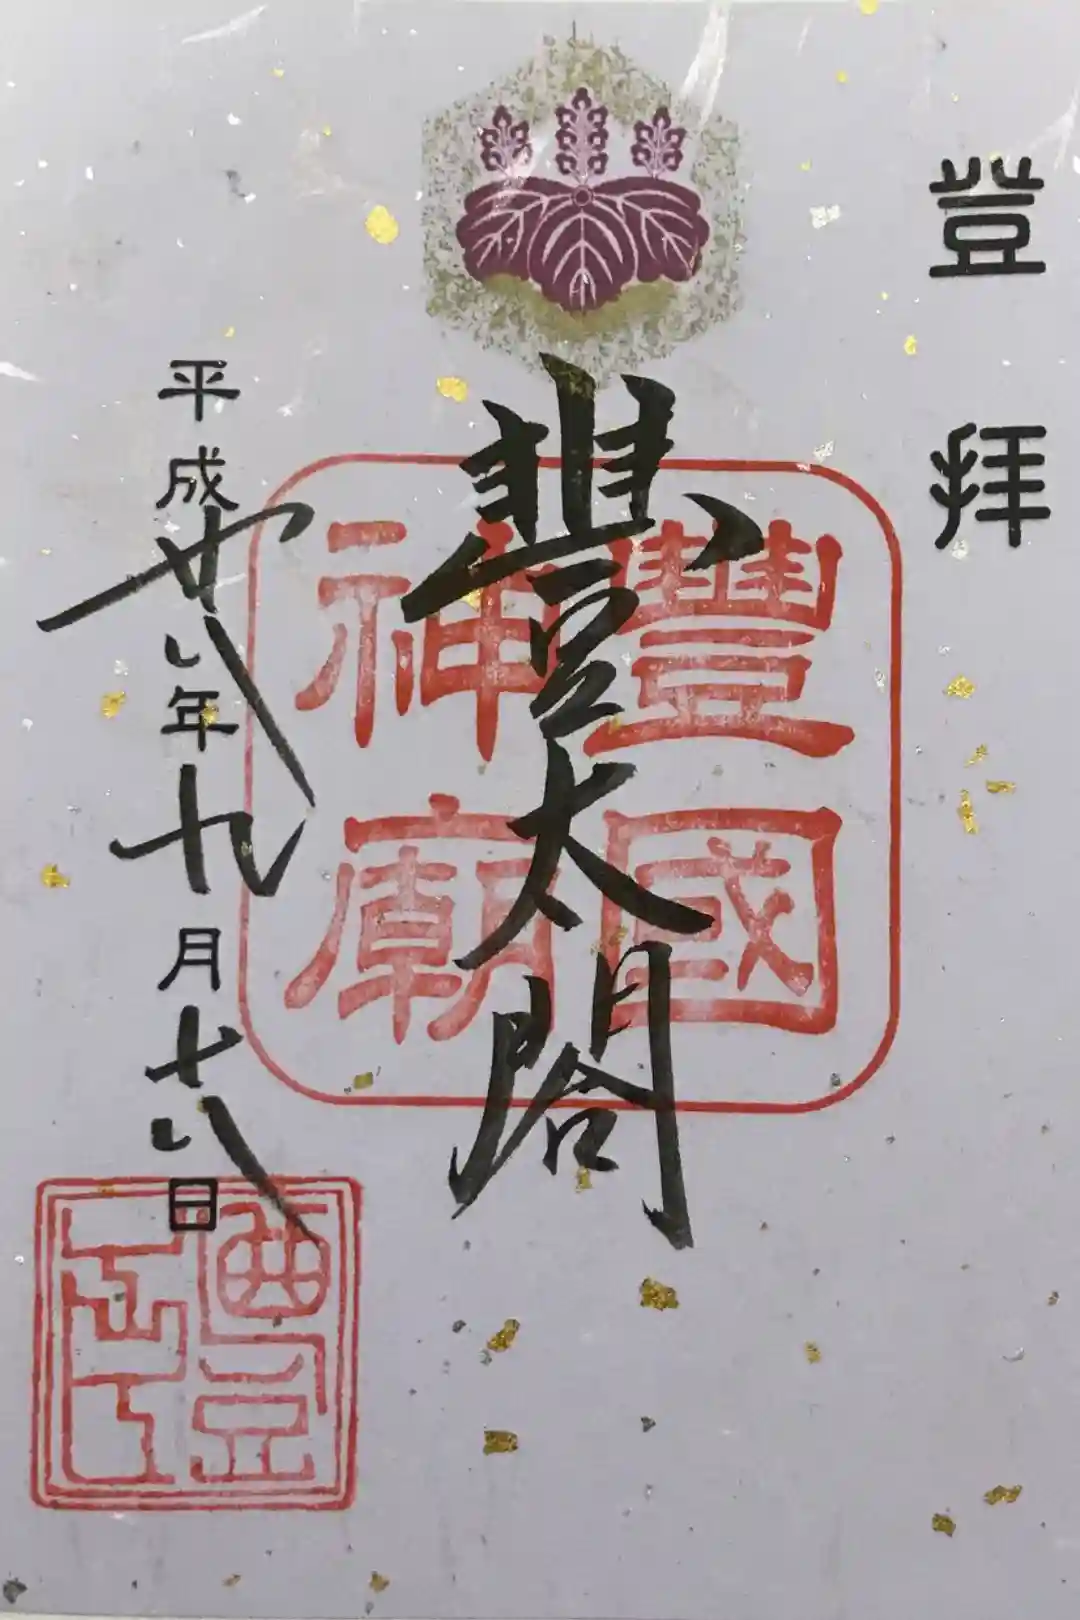 登拝
豐太閤
豐國
神廟
平成廿八年九月十八日